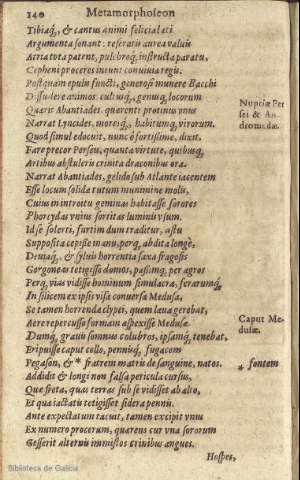 140 Metamorphoseon
Tibiaq́, & cantus animi felicia læti
Argumenta sonant: reseratis aurea valuis
Atria tota patent, pulchroq́, instructa paratu,
Cepheni proceres ineunt conuiuia regis.
Postquam epulis functi, generosi munere Bacchi
Diffudere animos: cultusq́, genusq́ locorum
Quærit Abantiades. quærenti protinus vnus
Narrat Lyncides, moresq́, habitumq́ virorum.
Quod simul edocuit, nunc ô fortissime, dixit,
Fare precor Perseu, quanta virtute, quibusq́
Artibus abstuleris crinita draconibus ora.
Narrat Abantiades, gelido sub Atlante iacentem
Esse locum solidæ tutum munimine molis,
Cuius in introitu geminas habitasse sorores
Phorcydas vnius sortitas luminis vsum.
Id se solerti, furtim dum traditur, astu
Supposita cepisse manu, perq́ abdita longè,
Deuiaq́, & syluis horrentia saxa fragosis
Gorgoneas tetigisse domos, passimq́ per agros
Perq́ vias vidisse hominum simulacra, ferarumq́
In silicem ex ipsis visa conuersa Medusa,
Se tamen horrendæ clypei, quem læua gerebat,
Aere repercusso formam aspexisse Medusæ.
Dumq́ grauis somnus colubros, ipsamq́ tenebat,
Eripuisse caput collo, pennisq́ fugacem
Pegason, & * fratrem matris de sanguine, natos.
Addidit & longi non falsa pericula cursus,
Quæ freta, quas terras sub se vidisset ab alto,
Et quæ iactatis tetigisset sidera pennis.
Ante expectatum tacuit, tamen excipit vnus
Ex numero procerum, quærens cur vna sororum
Gesserit alternis immistos crinibus angues.
Hospes,
Nuptiæ Per
sei & An
dromedæ.
Caput Me-
dusæ.
* fontem
Biblioteca de Galicia